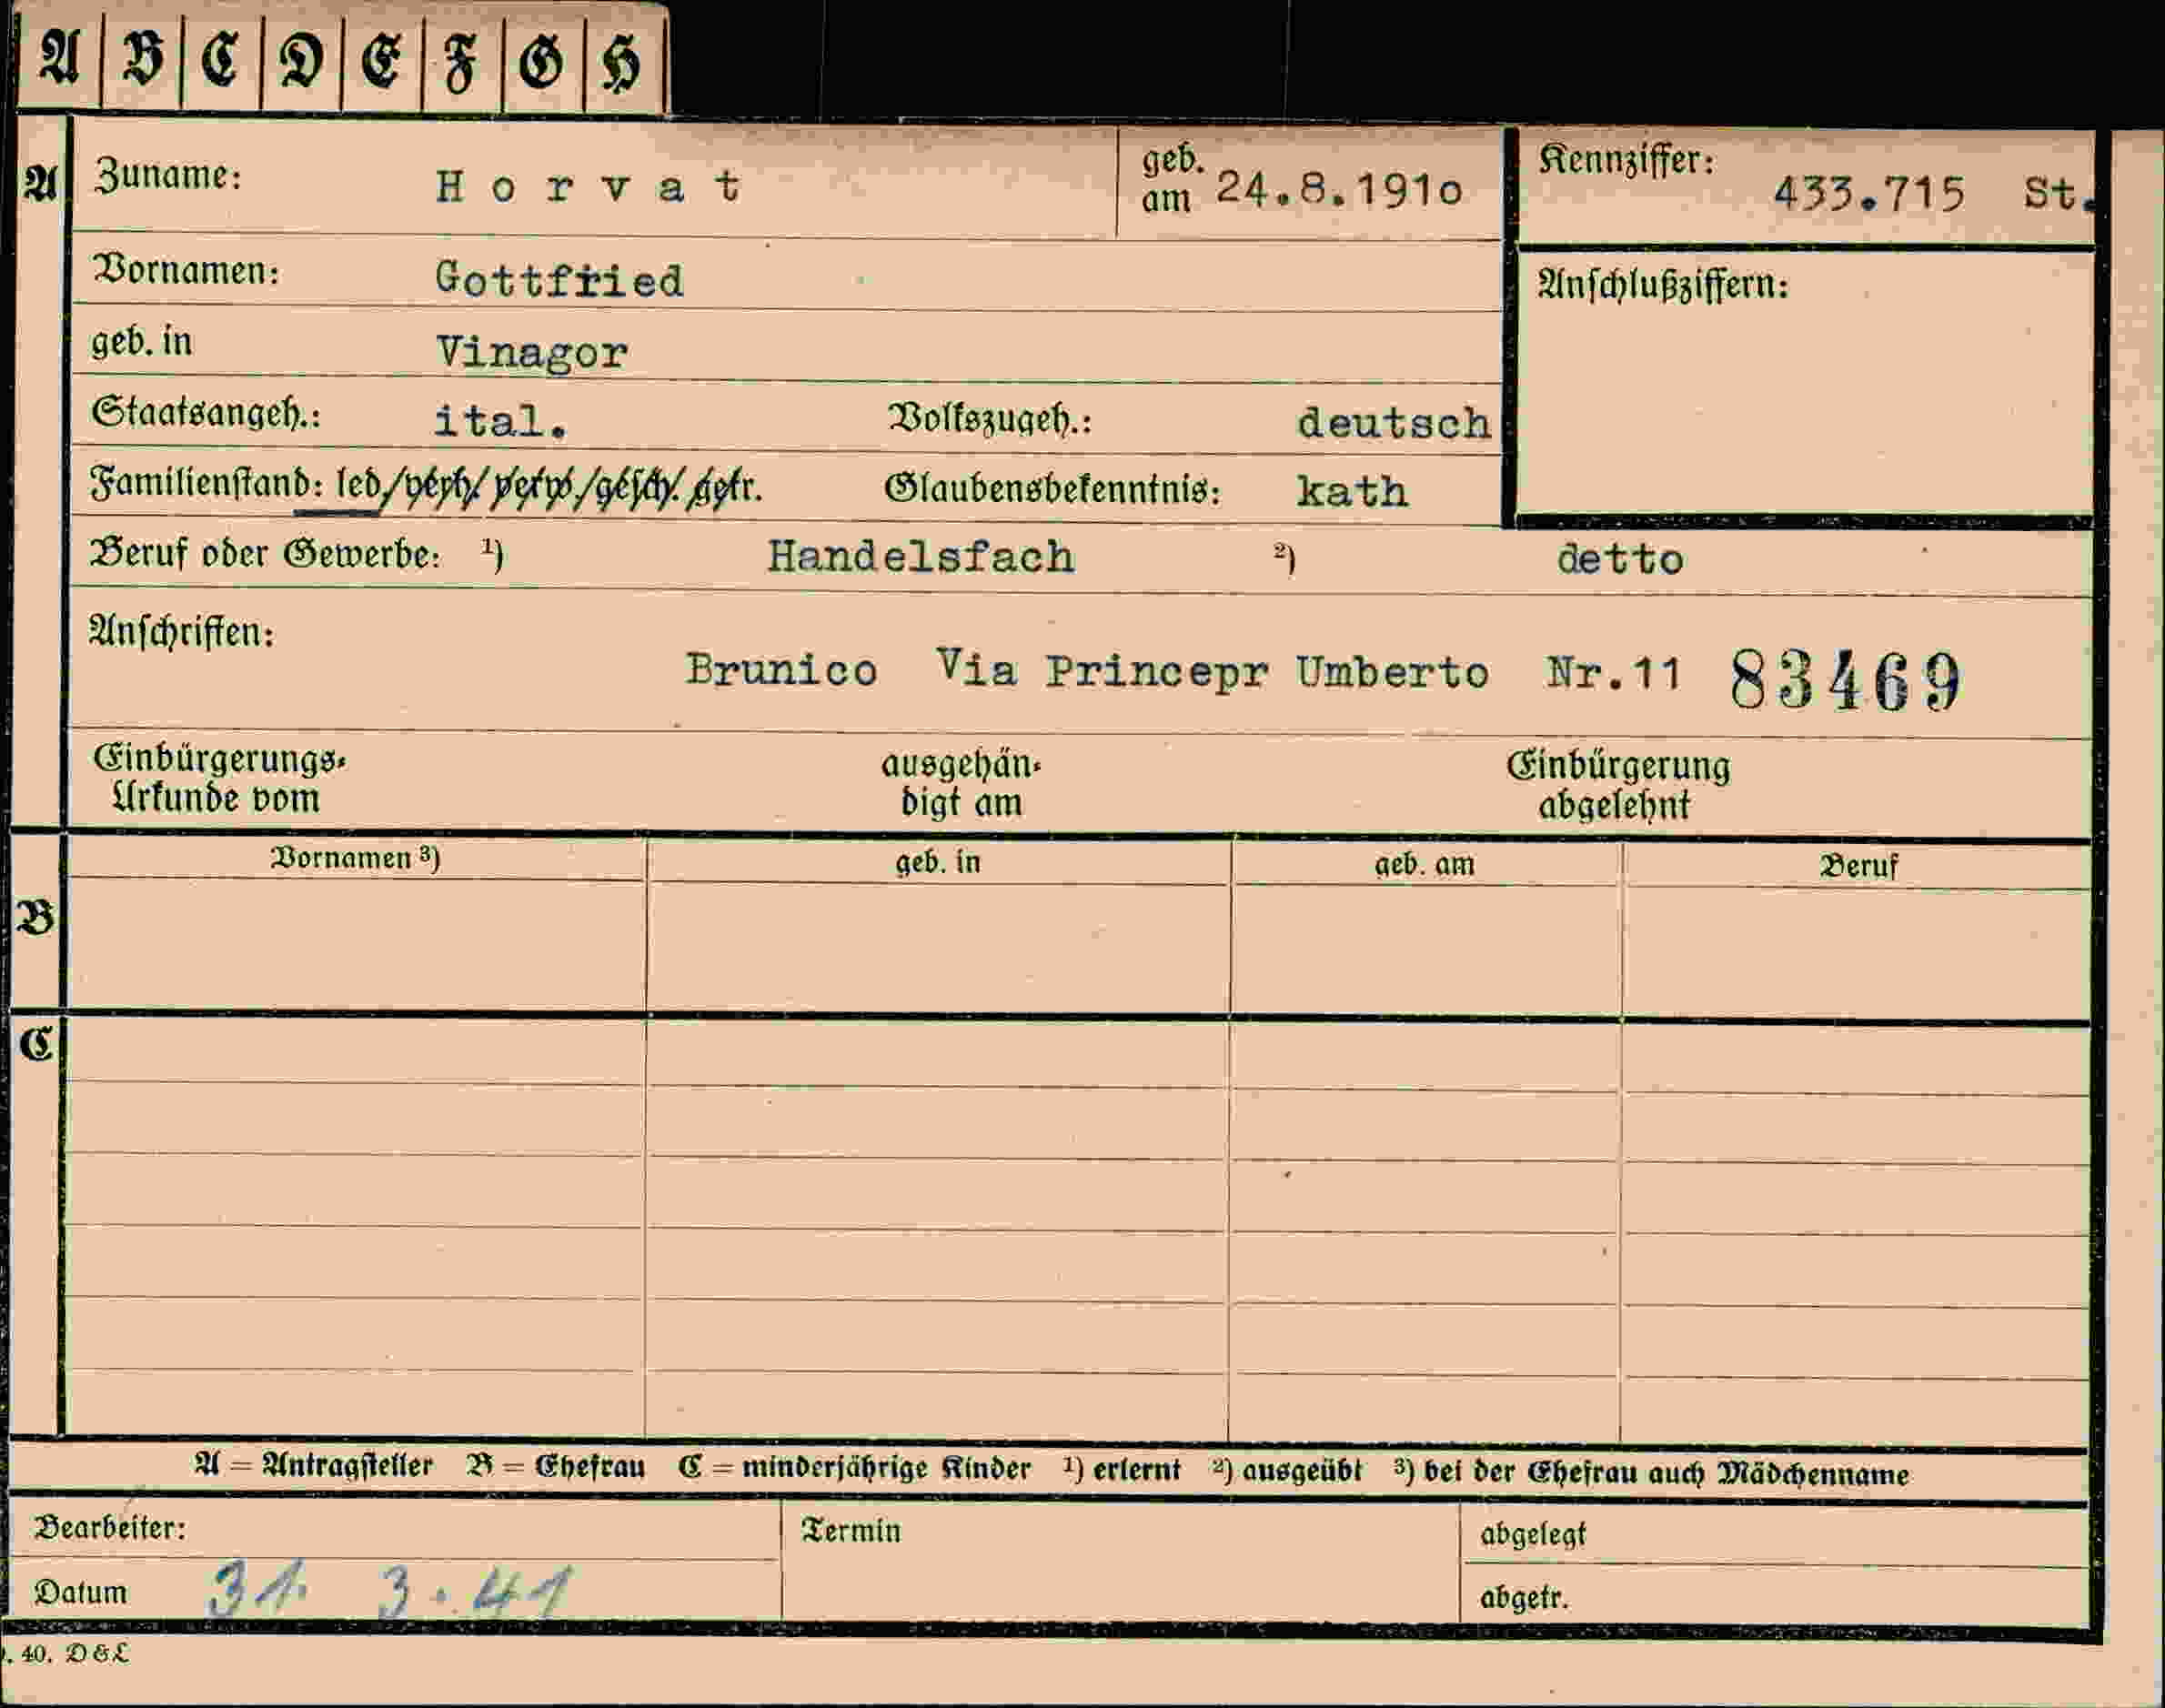 A B C D E F G H
A Zuname: Horvat geb. am 24.8.1910 Kennziffer: 433.715 St.
Vornamen: Gottfried Anschlußziffern:
geb. in Vinagor
Staatsangeh.: ital. Volkszugeh.: deutsch
Familienstand: led./verh./verw./gesch. getr. Glaubensbekenntnis: kath
Beruf oder Gewerbe: ¹) Handelsfach ²) detto
Anschriften:
Brunico Via Princepr Umberto Nr.11 83469
Einbürgerungs- ausgehän- Einbürgerung
Urkunde vom digt am abgelehnt
Vornamen ³) geb. in geb. am Beruf
B
C
A = Antragsteller B = Ehefrau C = minderjährige Kinder ¹) erlernt ²) ausgeübt ³) bei der Ehefrau auch Mädchenname
Bearbeiter: Termin abgelegt
Datum 31. 3. 41 abgetr.
. 40. D & L